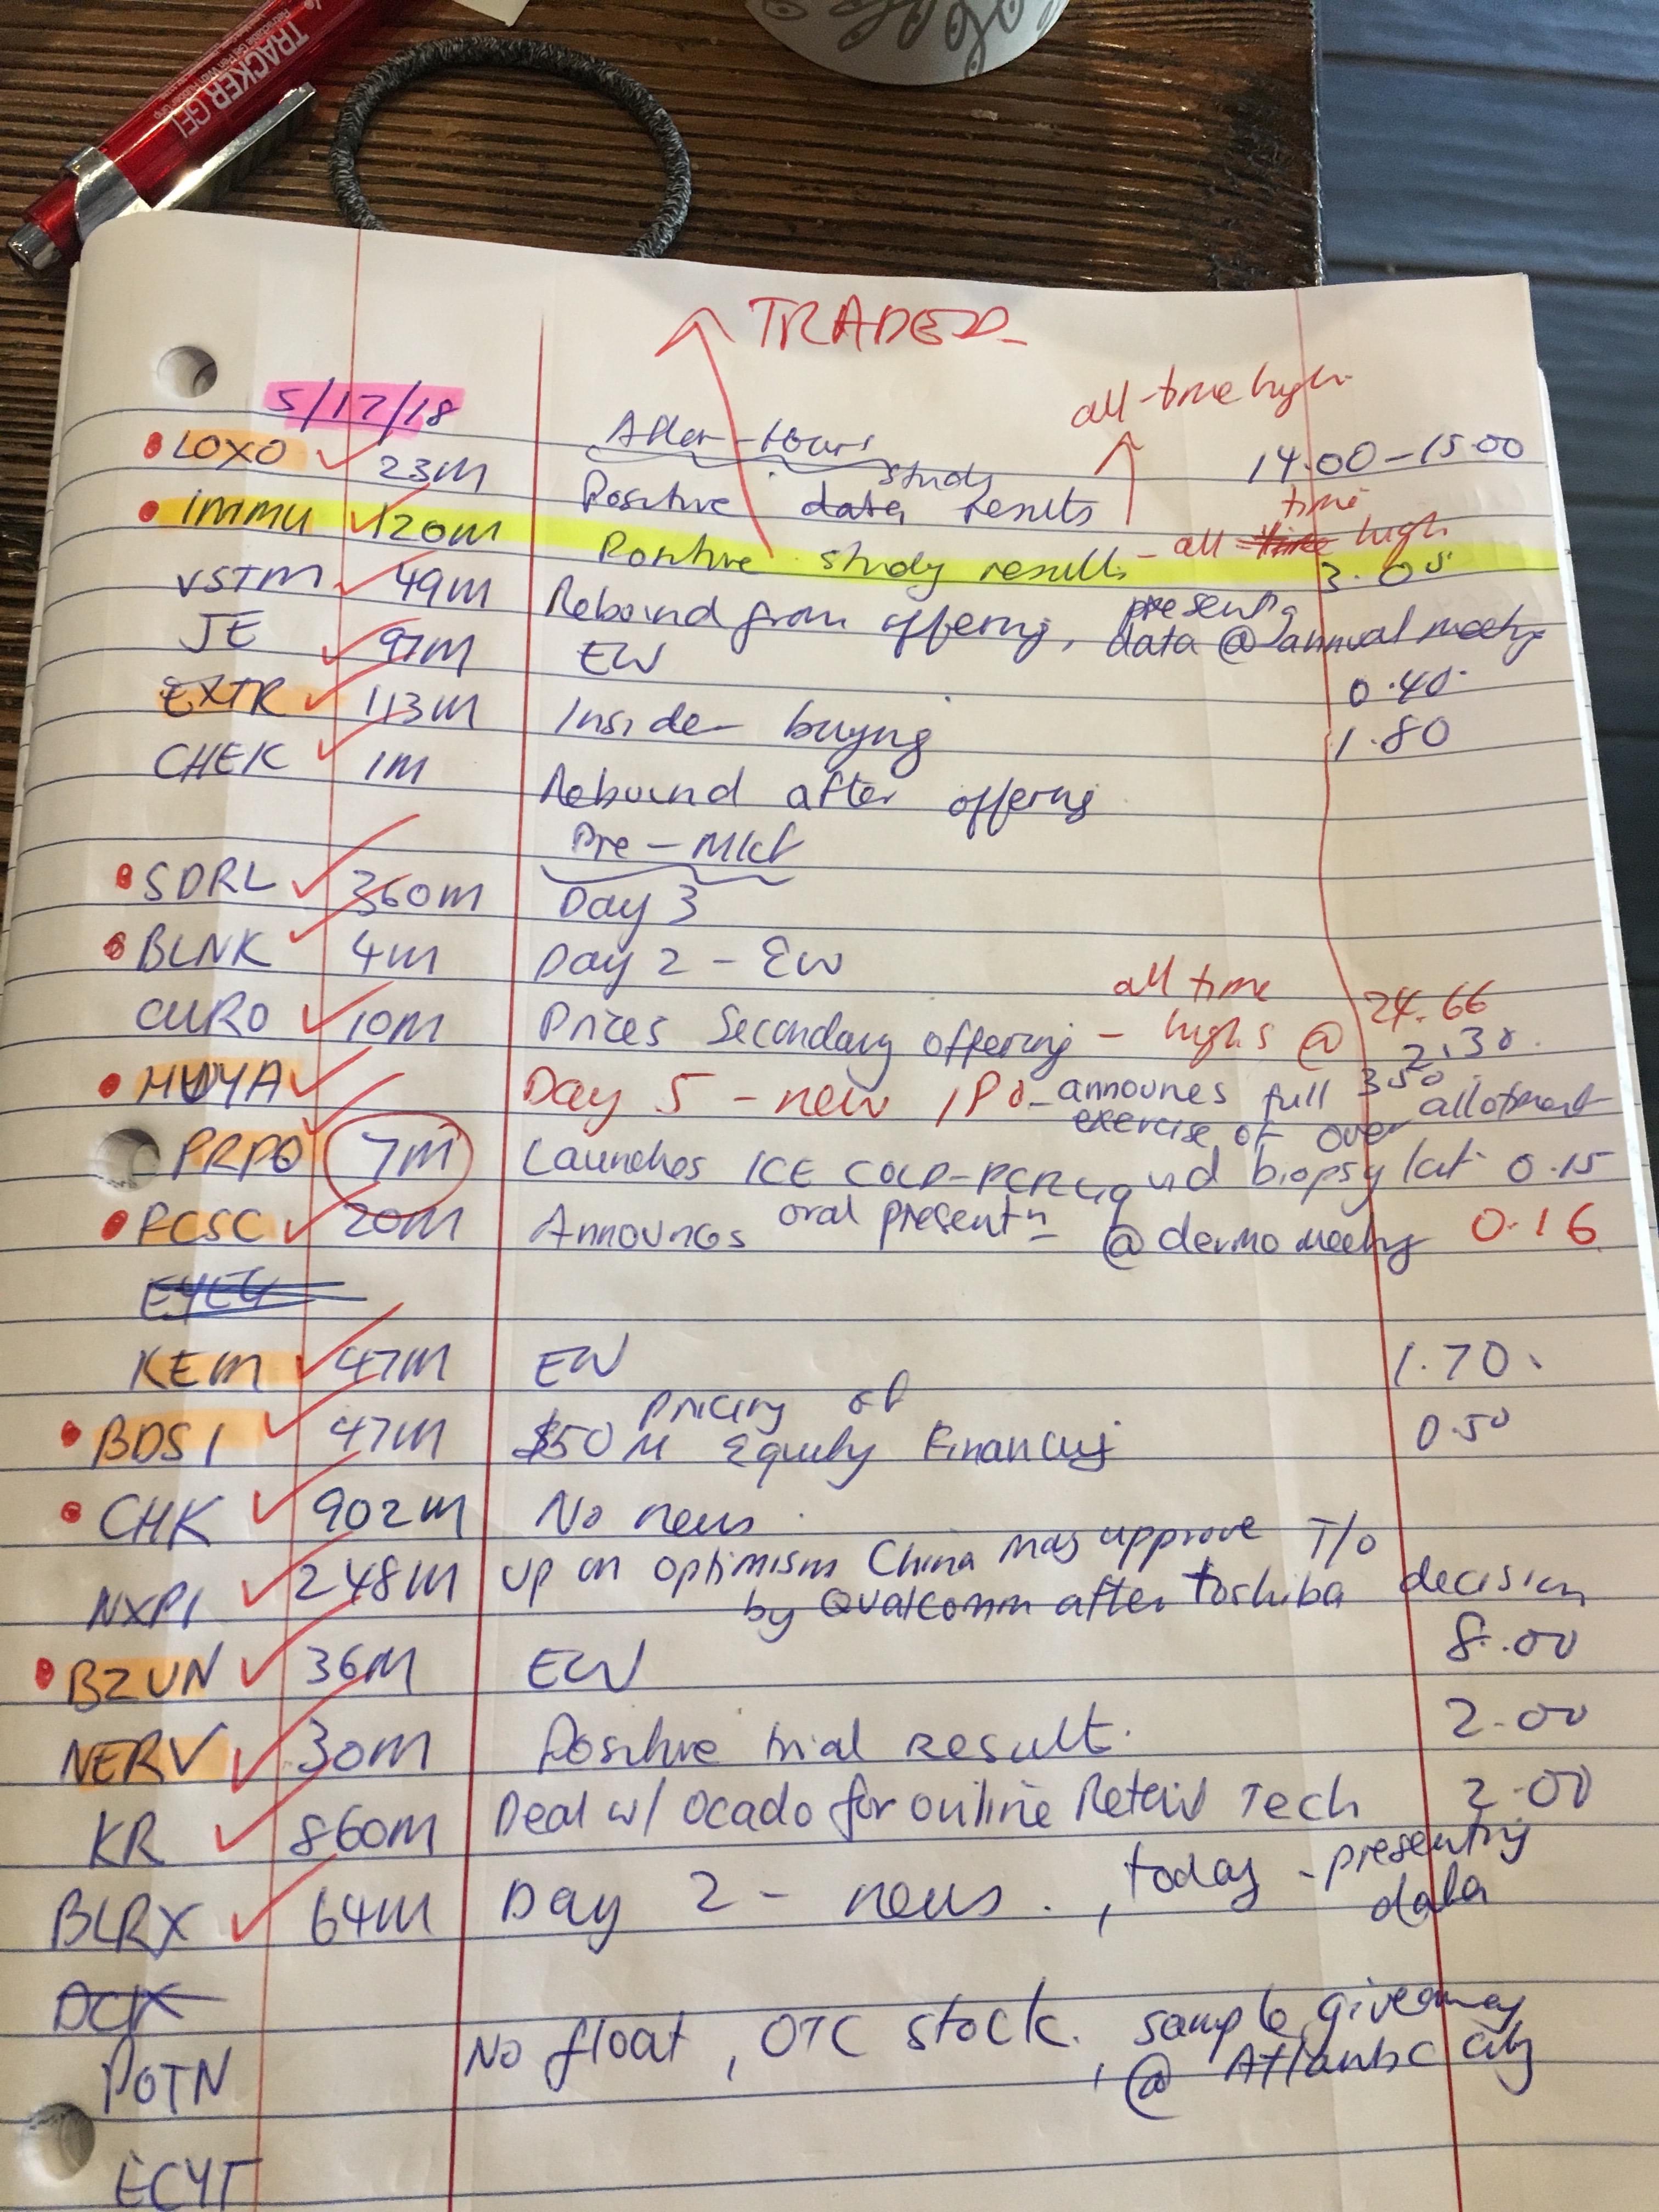 TRACKER GEL
TRADED
5/17/18
all-time high
After-Hours
LOXO 23M Positive study data results 14.00-15.00
IMMU 120M Positive study results - all time high
3.05
VSTM 49M Rebound from offering, presentg data @ annual meetg
JE 97M EW 0.40
EXTR 113M Inside buying 1.80
CHEK 1M Rebound after offering
Pre-Mkt
SDRL 360M Day 3
BLNK 4M Day 2 - EW
CURO 10M Prices Secondary offering - all time highs @ 24.66
2.30
HUYA Day 5 - new IPO - announes full exercise of over allotment 350
PRPO 7M Launches ICE COLD-PCR Liquid biopsy kit 0.15
FCSC 20M Announces oral presentn @ dermo meetg 0.16
KEM 47M EW 1.70
BDSI 47M Pricing of $50M Equity Financing 0.50
CHK 902M No news
NXPI 248M Up on optimism China may approve T/O by Qualcomm after toshiba decision
8.00
BZUN 36M EW
NERV 30M Positive trial result. 2.00
KR 860M Deal w/ Ocado for online Retail Tech 2.00
BLRX 64M Day 2 - news. , today - presenting data
DCK
POTN No float, OTC stock. sample giveaway, @ Atlantic City
ECYT